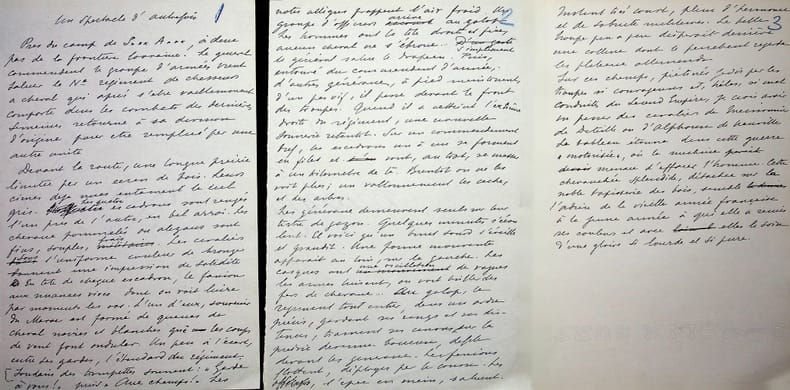 Un spectacle d'autrefois
1
Près du camp de S... A..., à deux
pas de la frontière lorraine. Le général
commandant le groupe d'armées vient
saluer le Nè régiment de chasseurs
à cheval qui après s'être vaillamment
comporté dans les combats des dernières
semaines retourne à sa division
d'origine pour être remplacé par une
autre unité
Devant la route, une longue prairie
limitée par un écran de bois. Leurs
cimes déjà nues entament le ciel
gris. les quatre escadrons sont rangés
l'un près de l'autre, en bel arroi. Les
chevaux pommelés ou alezans sont
fins, souples, Les cavaliers
sous l'uniforme couleur de
donnent une impression de solidité
En tête de chaque escadron, le fanion
aux nuances vives dont on voit luire
par moments les ors. L'un d'eux, souvenir
du Maroc est formé de queues de
cheval noires et blanches que les coups
de vent font onduler. Un peu à l'écart,
entre ses gardes, l'étendard du régiment.
Soudain des trompettes sonnent : "Garde
à vous !" puis "Aux champs !" Les
notes allègres frappent l'air froid. Un
2
groupe d'officiers arrive au galop.
Les hommes ont la tête droite et fière,
aucun cheval ne s'ébroue. D'un geste
simplement
le général salue le drapeau. Puis,
entouré du commandant d'armée,
d'autres généraux, à pied maintenant,
d'un pas vif, il passe devant le front
des troupes. Quand il a atteint l'extrême
droite du régiment, une nouvelle
sonnerie retentit. Sur un commandement
bref, les escadrons un à un se forment
en files et vont, au trot, se masser
à un kilomètre de là. Bientôt on ne les
voit plus ; un vallonnement les cache,
et des arbres.
Les généraux demeurent seuls sur leur
tertre de gazon. Quelques minutes s'écou-
lent. Et voici qu'un bruit sourd s'éveille
et grandit. Une forme mouvante
apparaît au loin, sur la gauche. Les
casques ont une oscillation de vagues
les armes luisent, on voit briller des
fers de chevaux. Au galop, le
régiment tout entier, dans un ordre
précis, gardant ses rangs et ses dis-
tances, traînant ses canons sur la
prairie devenue boueuse, défile
devant les généraux. Les fanions
flottent, déployés par la course. Les
officiers, l'épée en main, saluent.
Instant très court, plein d'harmonie
3
et de sobriété militaires. La belle
troupe peu à peu disparaît derrière
une colline dont le penchant regarde
les plateaux allemands.
Sur ces champs, piétinés jadis par les
troupes si courageuses et, hélas, si mal
conduites du Second Empire, je crois avoir
vu passer des cavaliers de Meissonier
de Detaille ou d'Alphonse de Neuville.
Le tableau étonne dans cette guerre
"motorisée", où la machine
menace d'effacer l'homme. Cette
chevauchée splendide, détachée sur la
noble tapisserie des bois, semble
l'adieu de la vieille armée française
à la jeune armée à qui elle a remis
ses couleurs et avec elles le soin
d'une gloire si lourde et si pure.